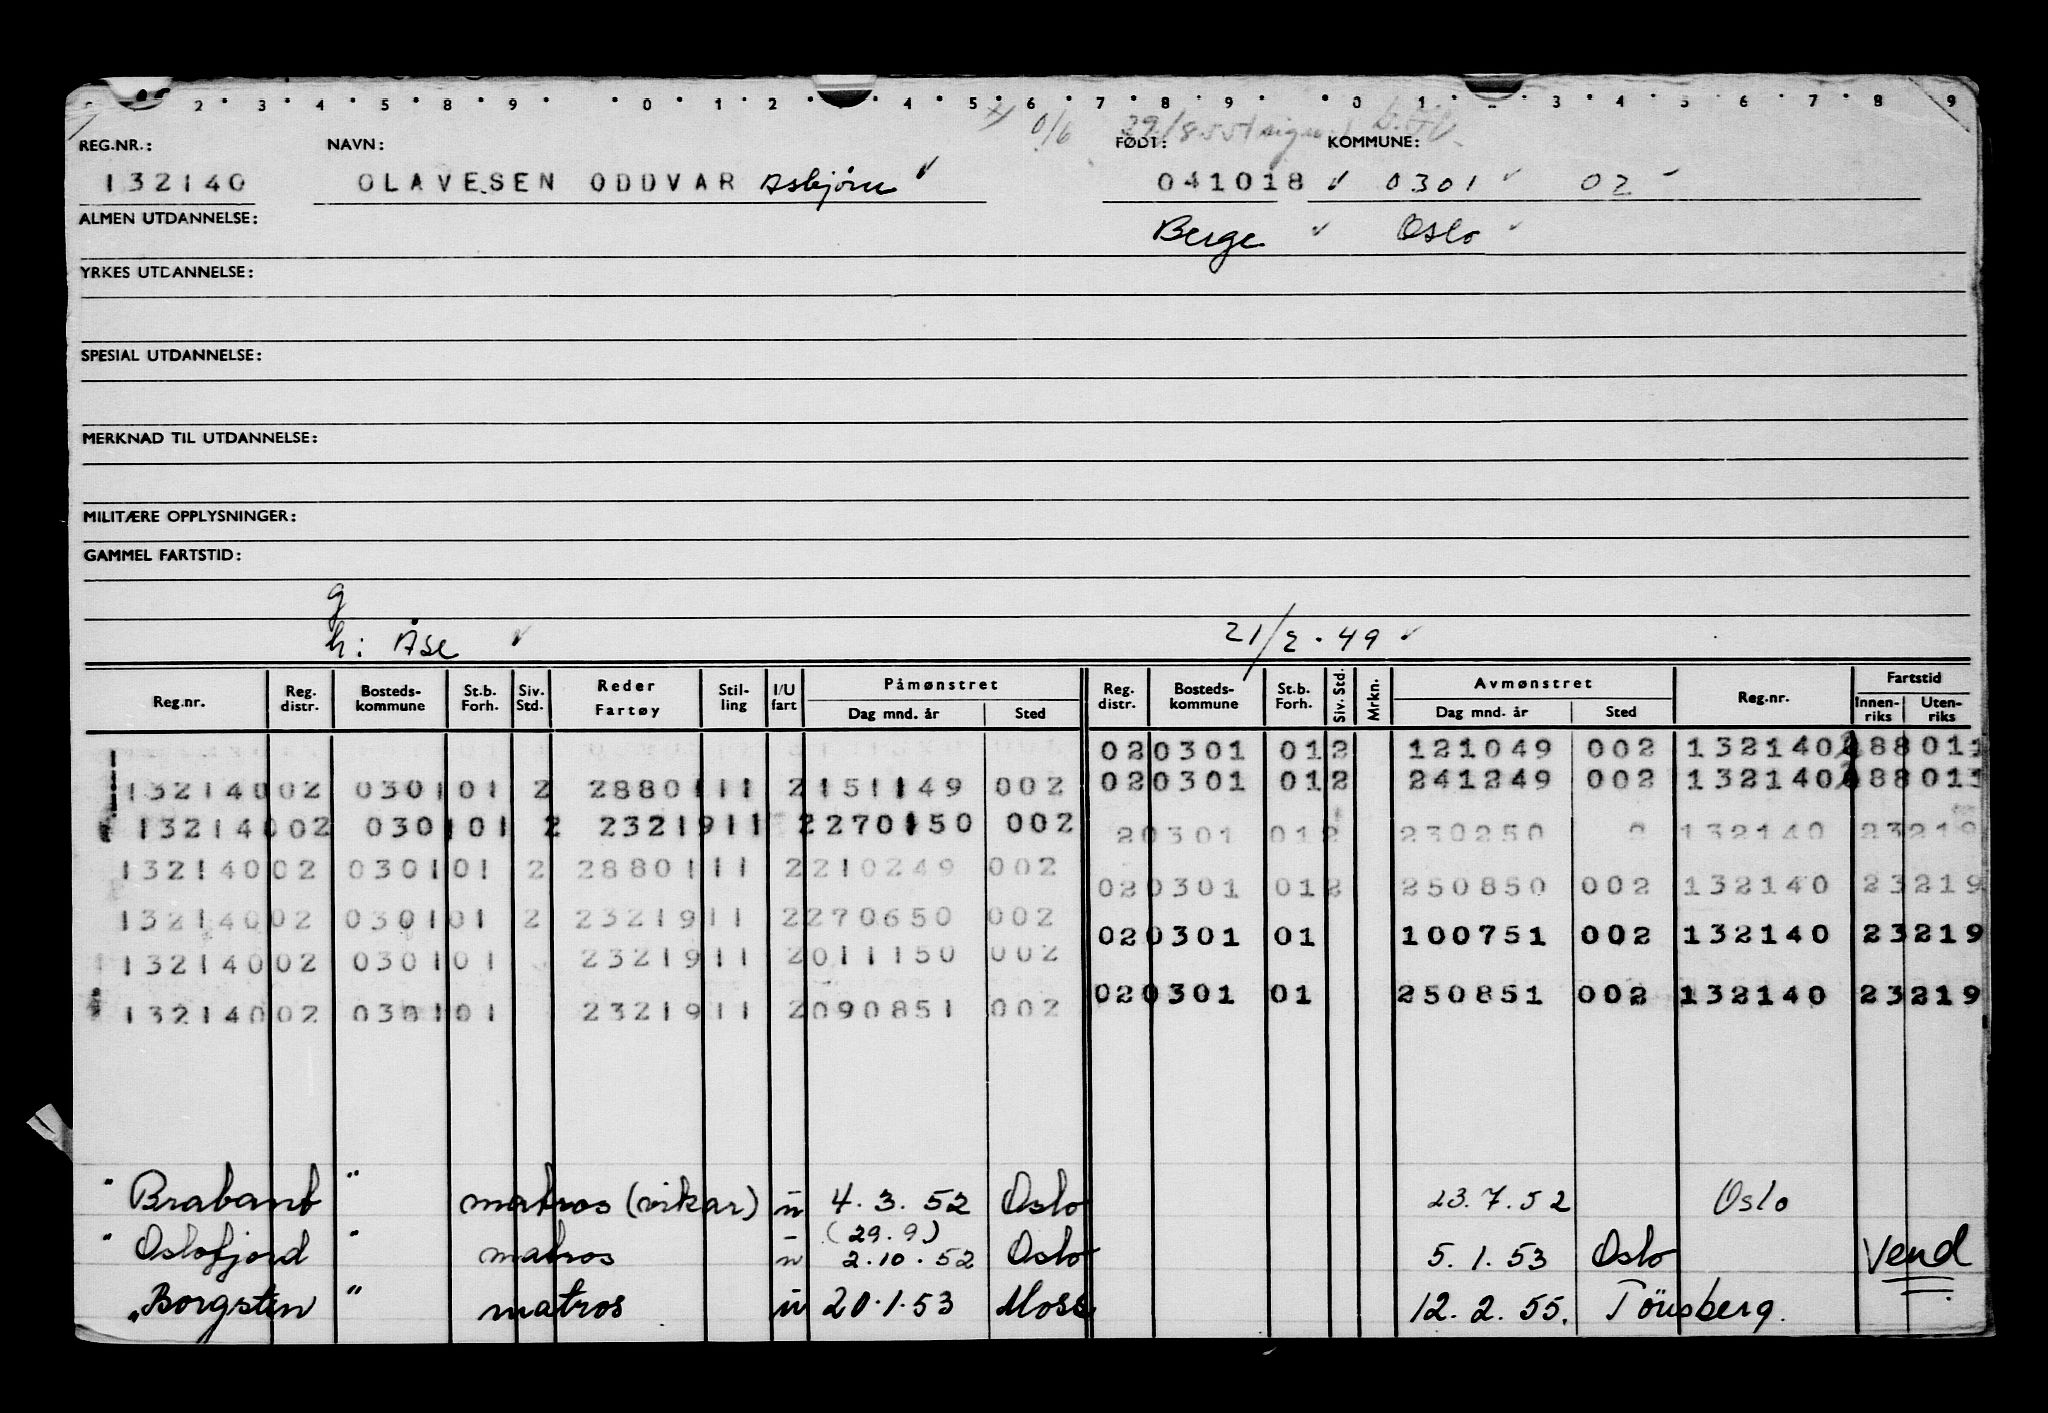 2 3 4 5 8 9 0 1 2 4 5 6 7 8 9 0 1 3 4 5 6 7 8 9
REG.NR.: NAVN: FØDT: KOMMUNE:
132140 OLAVESEN ODDVAR Asbjørn 041018 0301 02
ALMEN UTDANNELSE: Berge Oslo
YRKES UTDANNELSE:
SPESIAL UTDANNELSE:
MERKNAD TIL UTDANNELSE:
MILITÆRE OPPLYSNINGER:
GAMMEL FARTSTID:
g
h: Åse 21/2.49
Reg.nr. Reg. distr. Bosteds-kommune St.b. Forh. Siv. Std. Reder Fartøy Stil-ling I/U fart Påmønstret Dag mnd. år Sted Reg. distr. Bosteds-kommune St.b. Forh. Siv. Std. Mrkn. Avmønstret Dag mnd. år Sted Reg.nr. Fartstid Innen-riks Uten-riks
020301 012 121049 002 132140 88011
13214002 030101 2 2880111 2151149 002 020301 012 241249 002 132140 88011
13214002 030101 2 2321911 2270150 002 20301 012 230250 2 132140 23219
13214002 030101 2 2880111 2210249 002 020301 012 250850 002 132140 23219
13214002 030101 2 2321911 2270650 002 020301 01 100751 002 132140 23219
13214002 030101 2321911 2011150 002
13214002 030101 2321911 2090851 002 020301 01 250851 002 132140 23219
" Brabant " matros (vikar) u 4.3.52 Oslo 23.7.52 Oslo
(29.9)
" Oslofjord " matros u 2.10.52 Oslo 5.1.53 Oslo Vend
" Borgsten " matros u 20.1.53 Moss 12.2.55. Tönsberg.